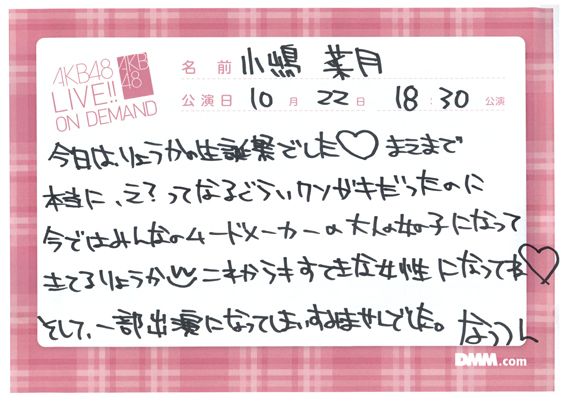 AKB48
LIVE!!
ON DEMAND
AKB
48
名前 小嶋 菜月
公演日 10月 22日 18:30 公演
今日は、りょうかの生誕祭でした♡ まえまで
本当に、え?ってなるぐらいクソガキだったのに
今ではみんなのムードメーカーの大人の女の子になって
きてるりょうか これからもすてきな女性になってね♡
そして、一部出演になってしまいすみませんでした。 なっつん
DMM.com